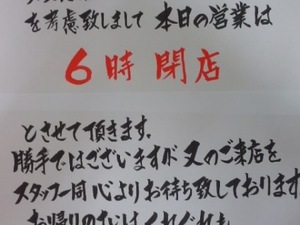 を考慮致しまして 本日の営業は
6時 閉店
とさせて頂きます。
勝手ではございますが 又のご来店を
スタッフ一同 心よりお待ち致しております
お帰りの
くれぐれも